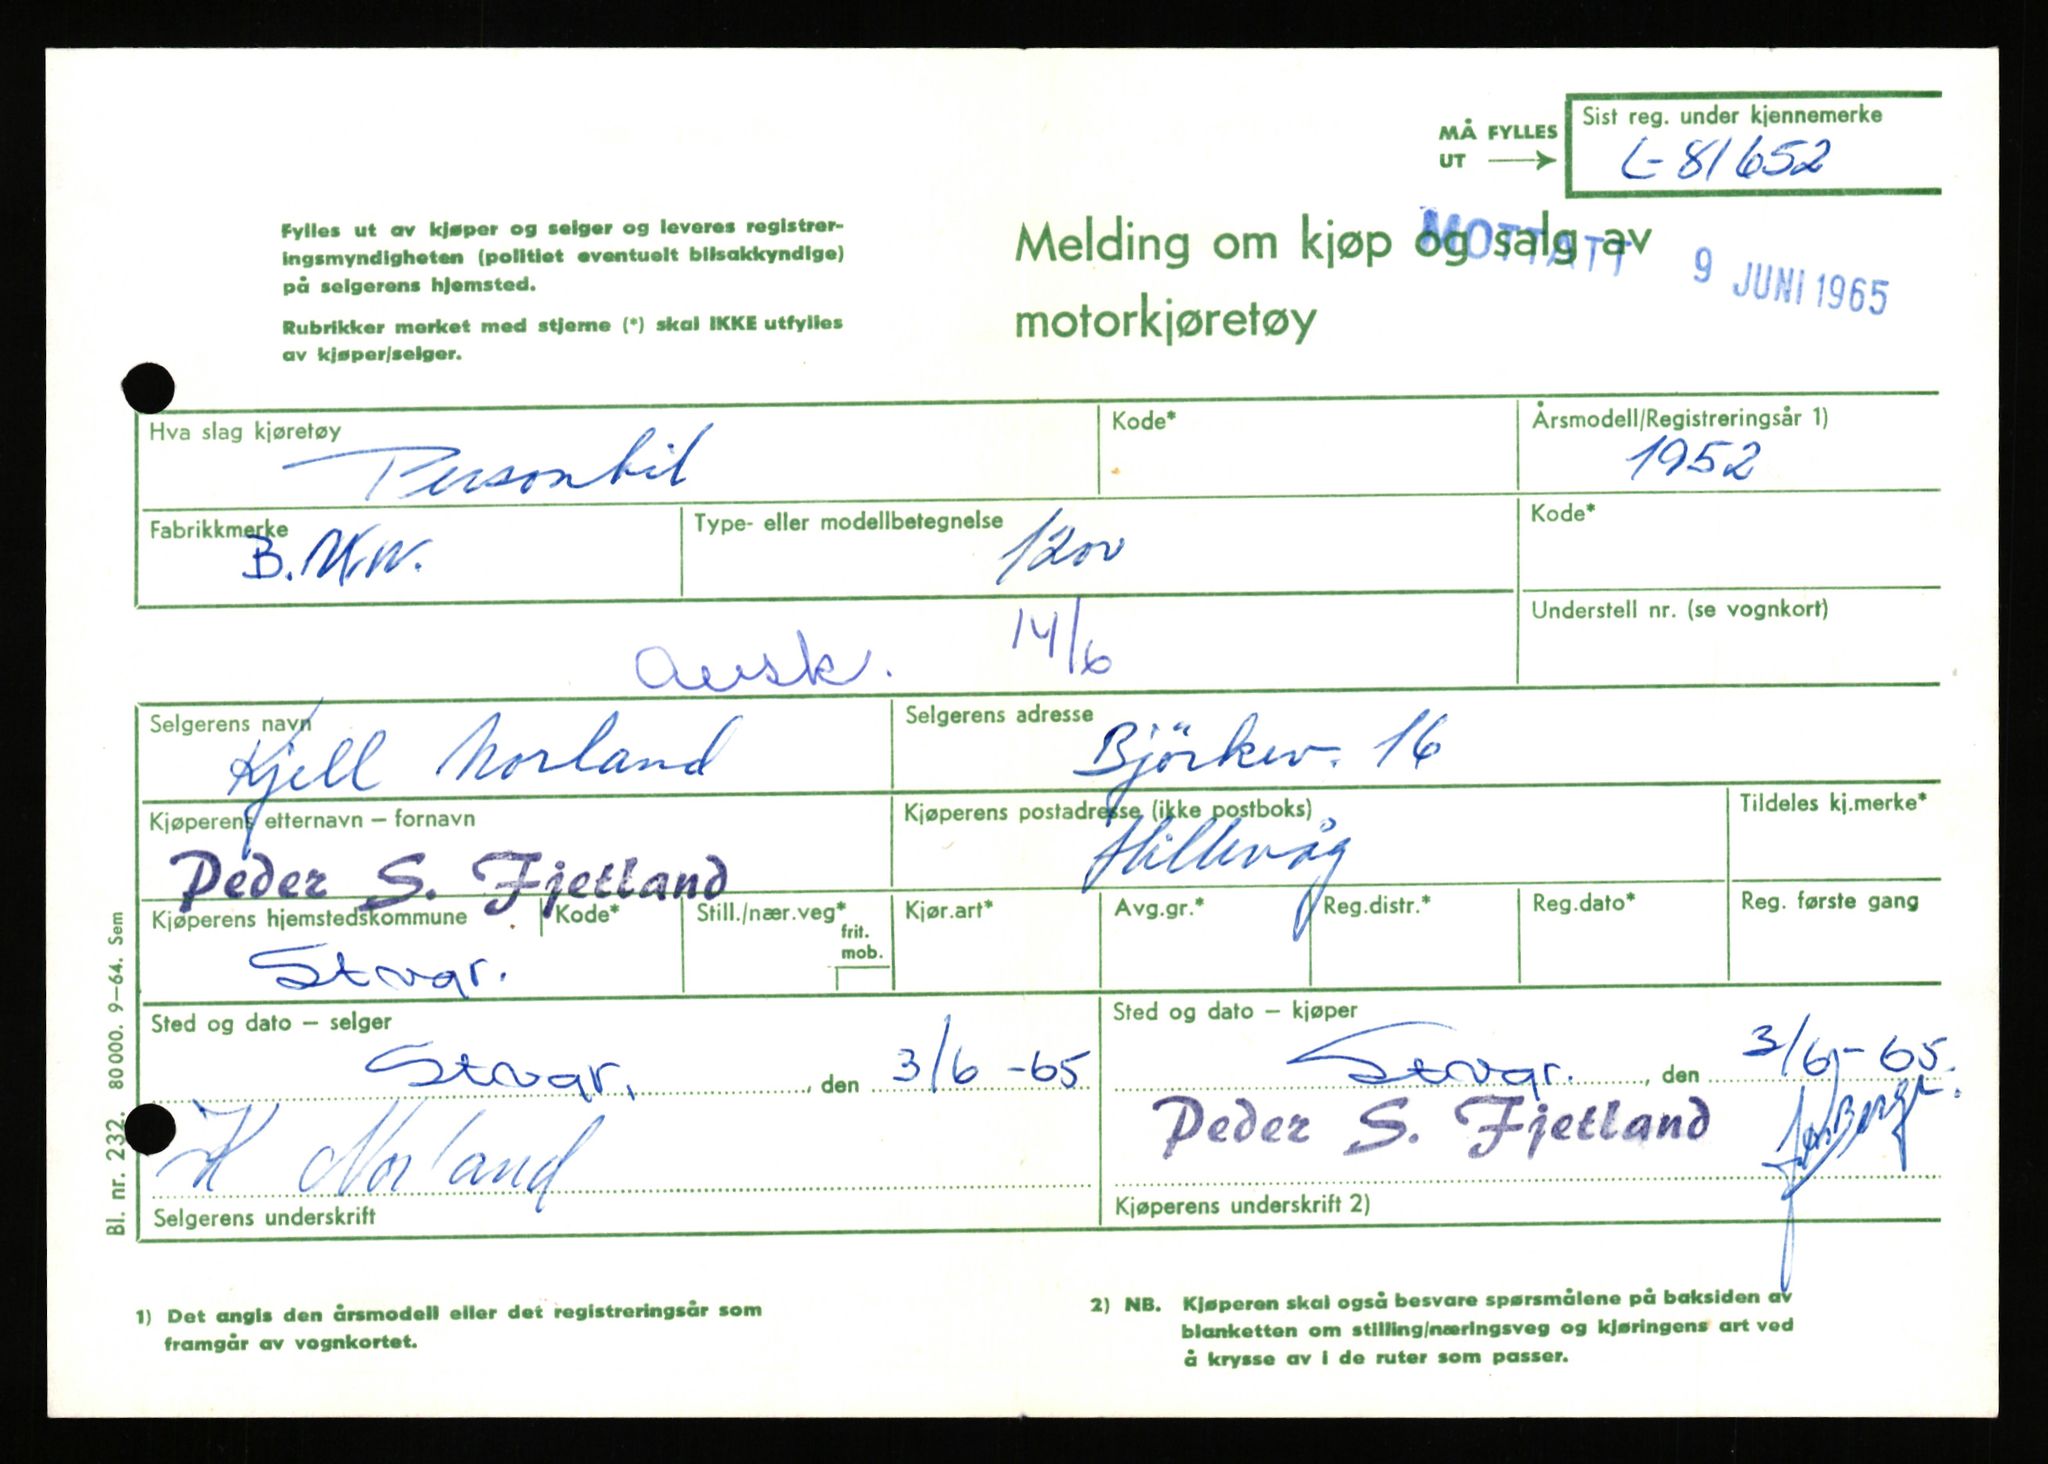 MÅ FYLLES
UT
Sist reg. under kjennemerke
L-81652
Fylles ut av kjøper og selger og leveres registrer-
ingsmyndigheten (politiet eventuelt bilsakkyndige)
på selgerens hjemsted.
Rubrikker merket med stjerne (*) skal IKKE utfylles
av kjøper/selger.
Melding om kjøp og salg av
motorkjøretøy
MOTTATT 9 JUNI 1965
Hva slag kjøretøy
Personbil
Kode*
Årsmodell/Registreringsår 1)
1952
Fabrikkmerke
B.M.W.
Type- eller modellbetegnelse
Kode*
Understell nr. (se vognkort)
avsk. 14/6
Selgerens navn
Kjell Norland
Selgerens adresse
Björkev. 16
Kjøperens etternavn – fornavn
Peder S. Fjetland
Kjøperens postadresse (ikke postboks)
Hillevåg
Tildeles kj.merke*
Kjøperens hjemstedskommune
Stvgr.
Kode*
Still./nær.veg*
frit.
mob.
Kjør.art*
Avg.gr.*
Reg.distr.*
Reg.dato*
Reg. første gang
Sted og dato – selger
Stvgr., den 3/6 -65
K Norland
Selgerens underskrift
Sted og dato – kjøper
Stvgr., den 3/6 - 65.
Peder S. Fjetland
Kjøperens underskrift 2)
Bl. nr. 232. 80000. 9–64. Sem
1) Det angis den årsmodell eller det registreringsår som
framgår av vognkortet.
2) NB. Kjøperen skal også besvare spørsmålene på baksiden av
blanketten om stilling/næringsveg og kjøringens art ved
å krysse av i de ruter som passer.